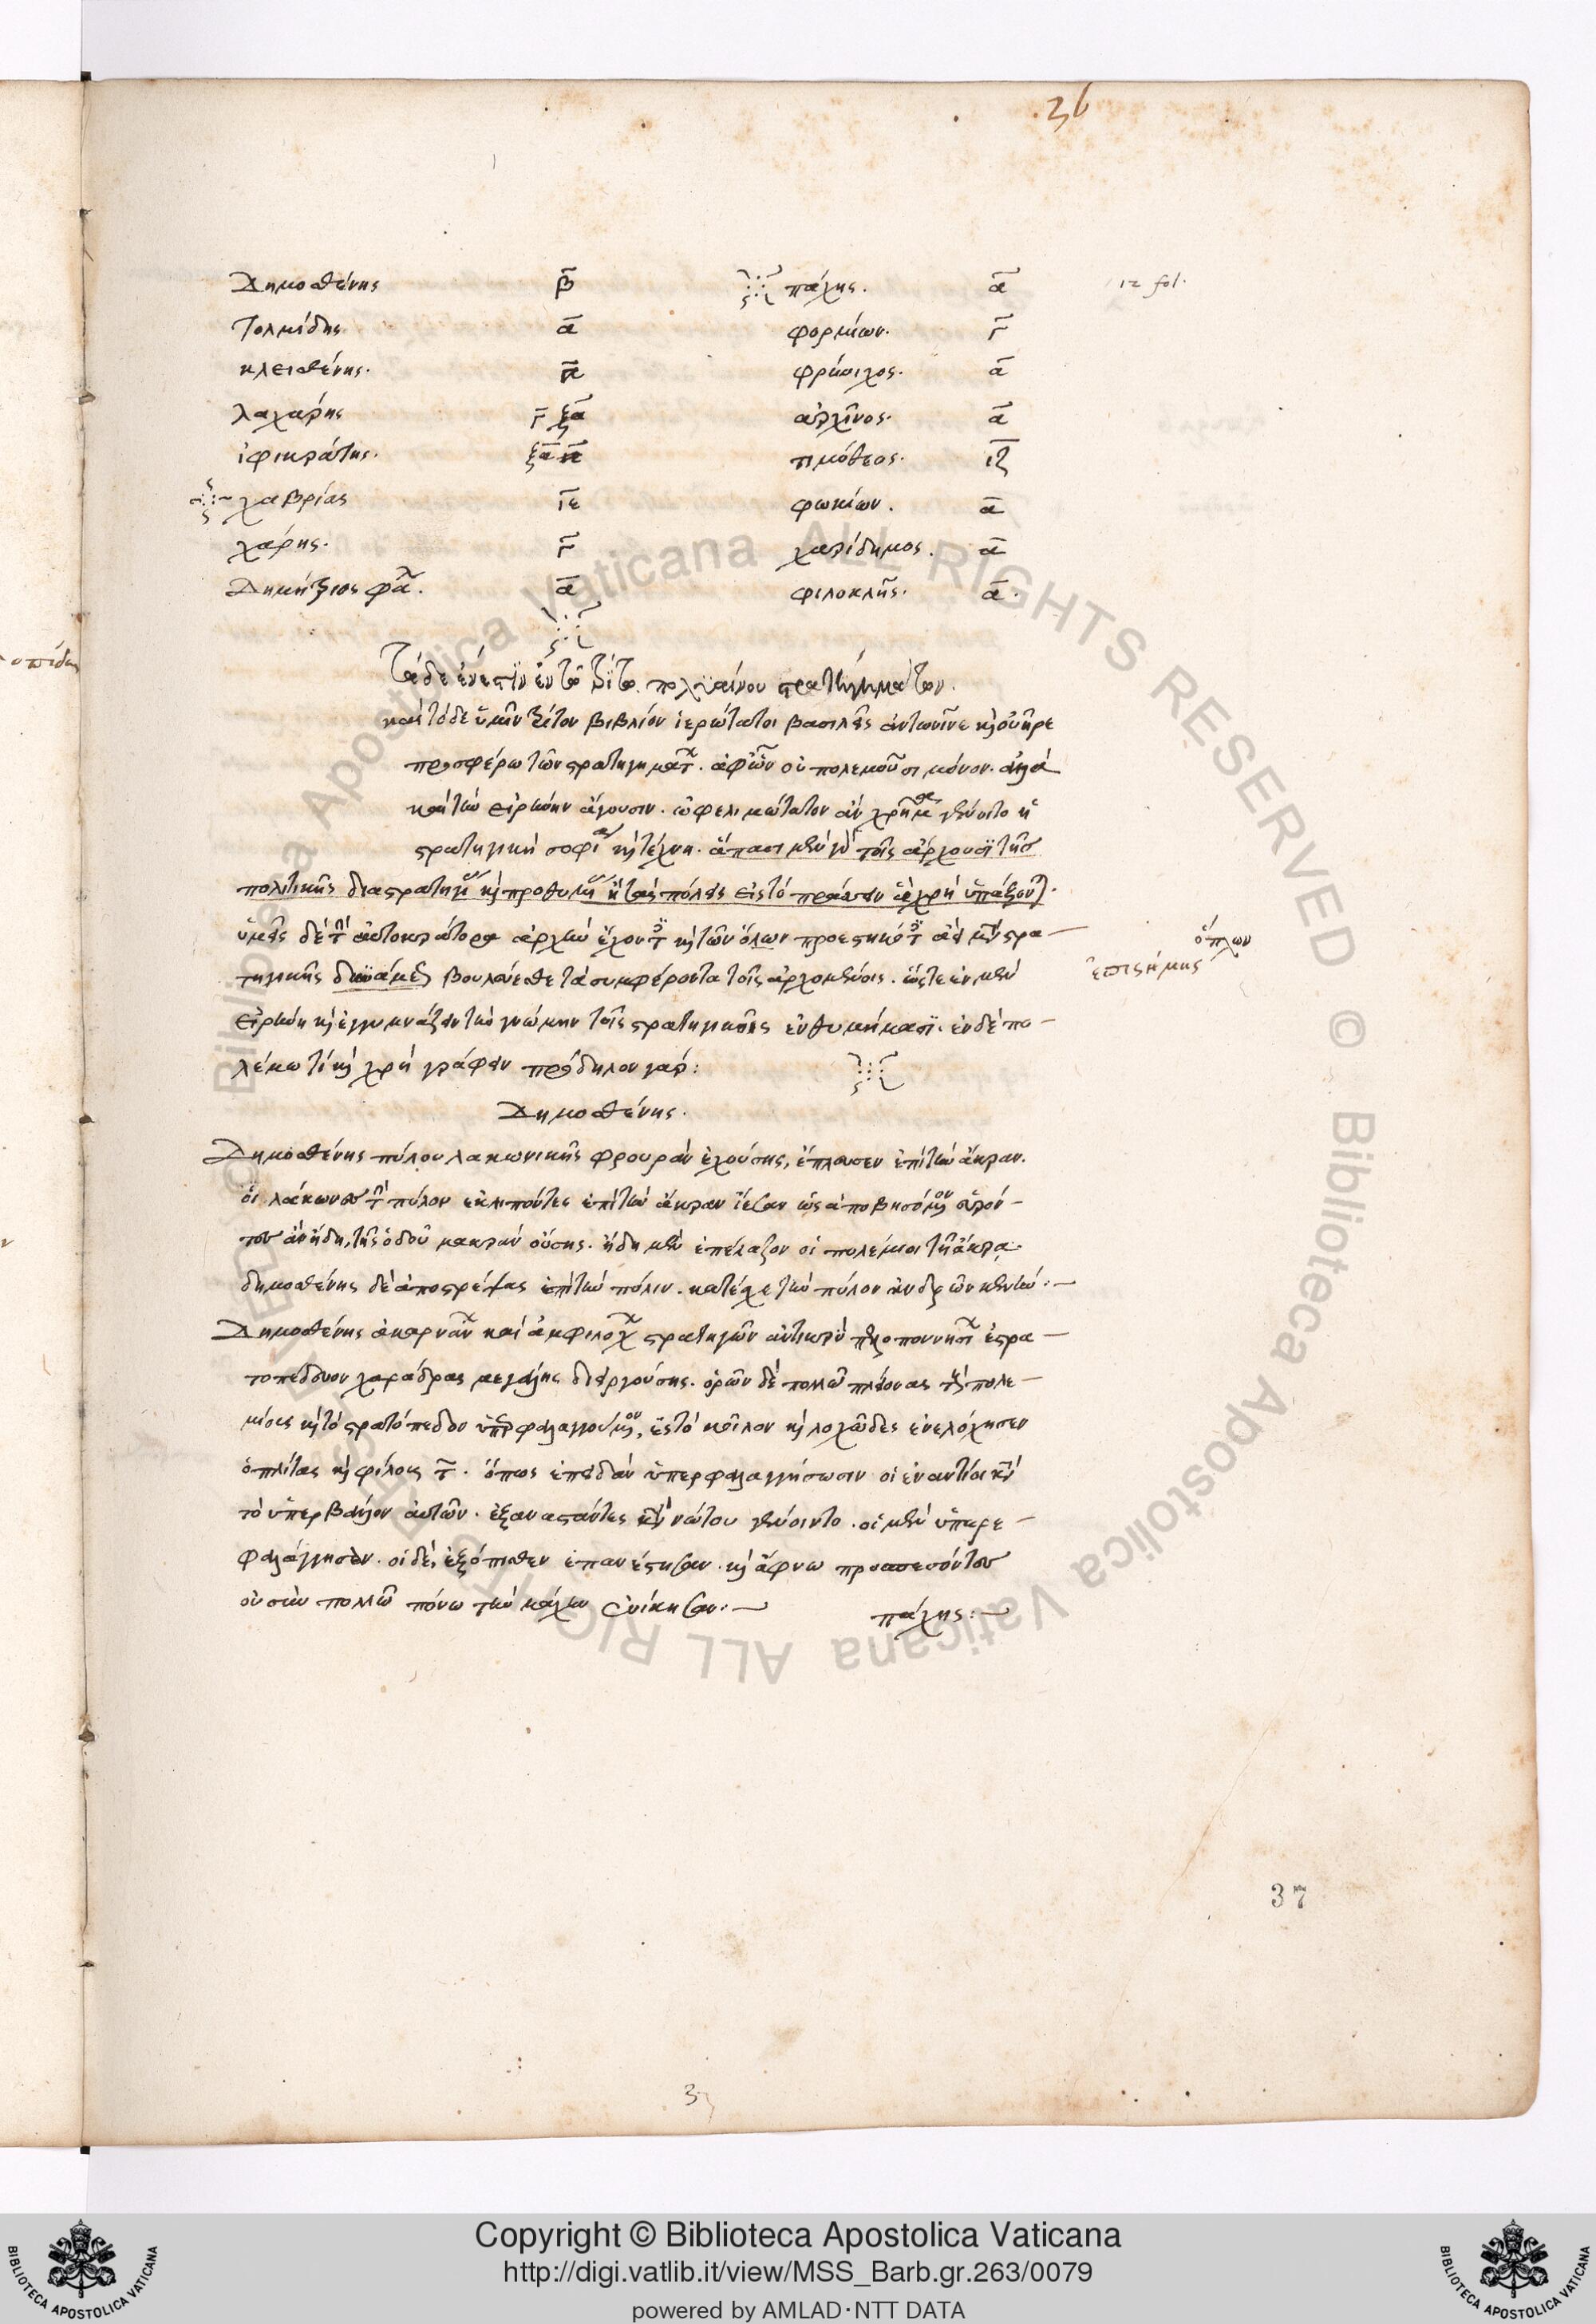 36
Δημοσθένης β πάχης. α 12 fol.
Τολμίδης α φορμίων. Γ
κλεισθένης. φρύνιχος. α
λαχάρης Γ ξα ἀρχῖνος. α
ἰφικράτης. ξα τιμόθεος. ιζ
χαβρίας ιε φωκίων. α
χάρης. Γ χαρίδημος. α
Δημήτριος φα. α φιλοκλῆς. α.
Τάδε ἔνεστιν ἐν τῷ τρίτῳ πολυαίνου στρατηγημάτων.
καὶ τόδε ὑμῖν τρίτον βιβλίον ἱερώτατοι βασιλεῖς ἀντωνῖνε καὶ οὐῆρε
προσφέρω τῶν στρατηγημάτ. ἀφ' ὧν οὐ πολεμοῦσι μόνον. ἀλλὰ
καὶ τὴν εἰρήνην ἄγουσιν. ὠφελιμώτατον ἂν χρῆμα γένοιτο ἡ
στρατηγικὴ σοφία καὶ τέχνη. ἅπασι μὲν τοῖς ἄρχουσι τῆς
πολιτικῆς διὰ στρατηγ καὶ προθυμ τὰς πόλεις εἰς τὸ πράττειν ἃ χρὴ ὑπάγουσι.
ὑμεῖς δὲ τὴν αὐτοκράτορα ἀρχὴν ἔχοντες καὶ τῶν ὅλων προεστηκότες ἀεὶ μετὰ στρα-
ὅπλων
τηγικῆς δυνάμεως βουλεύεσθε τὰ συμφέροντα τοῖς ἀρχομένοις. ὥστε ἐν μὲν
ἐπιστήμης
εἰρήνῃ καὶ ἐγγυμνάζειν τὴν γνώμην τοῖς στρατηγικοῖς ἐνθυμήμασι. ἐν δὲ πο-
λέμῳ τί καὶ χρὴ γράφειν πρόδηλον γάρ:
Δημοσθένης.
Δημοσθένης πύλου λακωνικῆς φρουρὰν ἐχούσης, ἔπλευσεν ἐπὶ τὴν ἄκραν.
οἱ λάκωνες τὴν πύλον ἐκλιπόντες ἐπὶ τὴν ἄκραν ἵεσαν ὡς ἀποβησόμενον αἱρόν-
τες ἂν ἤδη, τῆς ὁδοῦ μακρὰν οὔσης. ἤδη μὲν ἐπέλαζον οἱ πολέμιοι τῇ ἄκρᾳ.
δημοσθένης δὲ ἀποστρέψας ἐπὶ τὴν πόλιν. κατέσχε τὴν πύλον ἀνδρῶν κενήν:-
Δημοσθένης ἀκαρνάν καὶ ἀμφιλόχ στρατηγῶν ἀντικρὺ πελοποννησί ἐστρα-
τοπέδευον χαράδρας μεγάλης διειργούσης. ὁρῶν δὲ πολλῷ πλέονας τοὺς πολε-
μίους καὶ τὸ στρατόπεδον ὑπερφαλαγγούμενον, ἐς τὸ κοῖλον καὶ λοχῶδες ἐνελόχησεν
ὁπλίτας καὶ ψίλους τ. ὅπως ἐπειδὰν ὑπερφαλαγγήσωσιν οἱ ἐναντίοι κατὰ
τὸ ὑπερβάλλον αὐτῶν. ἐξαναστάντες κατὰ νώτου γένοιντο. οἱ μὲν ὑπερε-
φαλάγγησαν. οἱ δὲ, ἐξόπισθεν ἐπανέστησαν. καὶ ἄφνω προσπεσόντες
οὐ σὺν πολλῷ πόνῳ τὴν μάχην ἐνίκησαν:-
πάχης:-
37
Copyright © Biblioteca Apostolica Vaticana
http://digi.vatlib.it/view/MSS_Barb.gr.263/0079
powered by AMLAD·NTT DATA